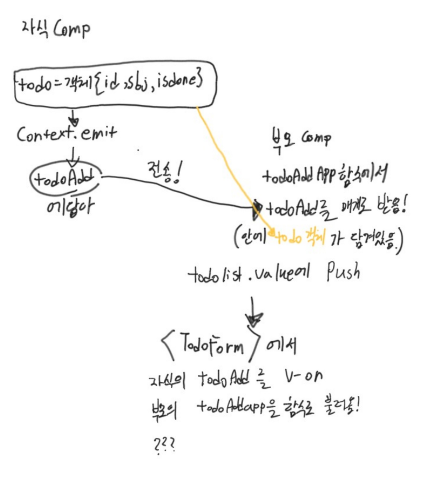 자식 Comp
todo = 객체{id, sbj, isdone}
Context.emit
todoAdd
에담아
전송!
부모 Comp
todoAdd App 함수에서
todoAdd를 매개로 받음!
(안에 todo 객체가 담겨있음.)
todolist.value에 Push
<TodoForm>에서
자식의 todoAdd를 V-on
부모의 todoAddapp을 함수로 불러옴!
???